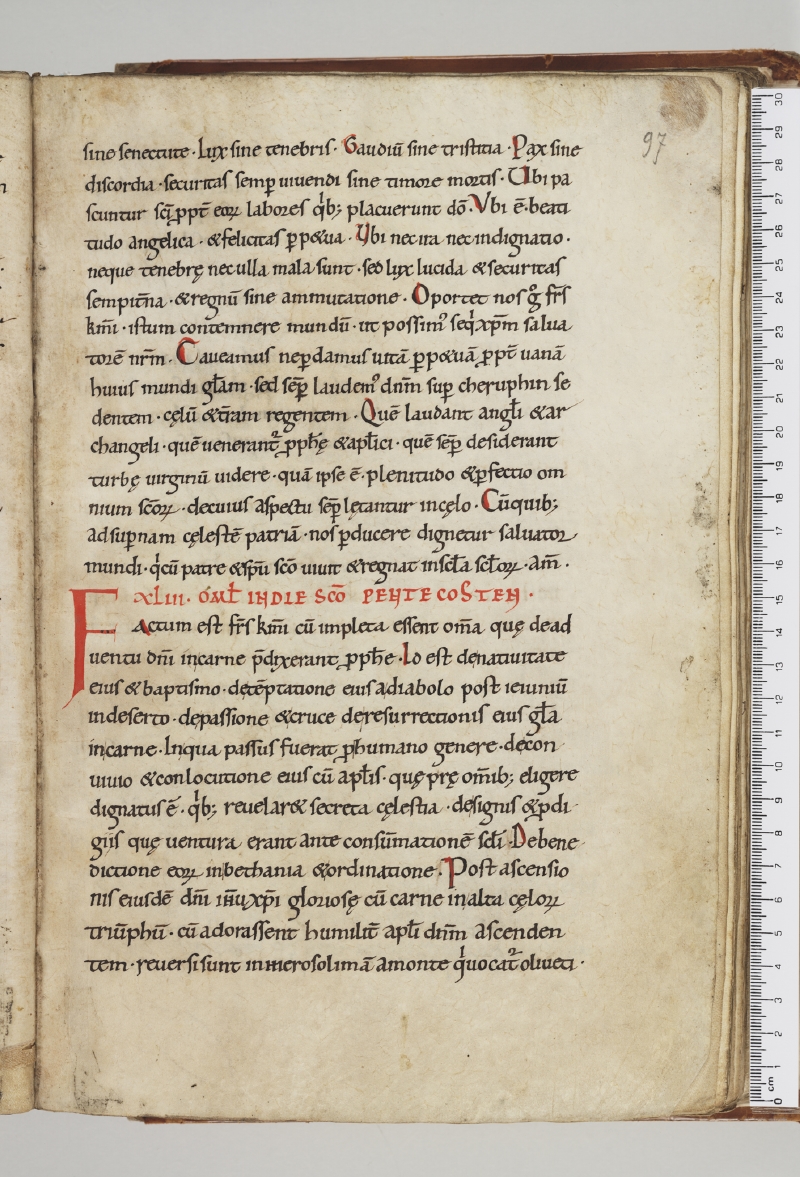 97
sine senectute · Lux sine tenebris · Gaudiū sine tristitia · Pax sine
discordia · securitas semꝑ uiuendi sine timore mortis · Ubi pa
scuntur sc̄i ꝓpt̄ eoꝝ labores qͥb; placuerunt dō · Vbi ē · beati
tudo angelica · &felicitas ꝑp&ua · Vbi nec ira nec indignatio ·
neque tenebrę nec ulla mala sunt · sed lux lucida &securitas
sempit̄na · &regnū sine ammutatione · Oportet nos gͦ fr̄s
km̄i · istum contemnere mundū · ut possimꝰ seqͥ xp̄m salua
torē nr̄m · Caueamus ne ꝑdamus uitā ꝑp&uā ꝓpt̄ uanā
huius mundi gl̄am · sed sēꝑ laudemꝰ dn̄m suꝑ cheruphin se
dentem · cęlū &t̄ram regentem · Quē laudant angl̄i &ar
changeli · quē uenerant᷑ ꝓph̄ę &apl̄ici · quē sēꝑ desiderant
turbę uirginū uidere · quā ipse ē · plenitudo &ꝑfectio om
nium sc̄oꝝ · de cuius aspectu sēꝑ lętantur in cęlo · Cū quib;
ad suꝑnam cęlestē patriā · nos ꝑducere dignetur saluator
mundi · qͥ cū patre &sp̄u sc̄o uiuit &regnat in sc̄la sc̄loꝝ · am̄ ·
xliii · om̄l IN DIE SCŌ PENTECOSTEN ·
Factum est fr̄s km̄i cū impleta essent om̄a quę de ad
uentu dn̄i in carne p̄dixerant ꝓph̄e · Id est de natiuitate
eius &baptismo · de tēptatione eius a diabolo post ieiuniū
in deserto · de passione &cruce de resurrectionis eius gl̄a
in carne · In qua passus fuerat ꝓ humano genere · de con
uiuio &conlocutione eius cū apl̄is · quę prę om̄ib; eligere
dignatus ē · qͥb; reuelar& secreta cęlestia · de signis &ꝓdi
giis quę uentura erant ante consūmationē sc̄li · De bene
dictione eoꝝ in bethania &ordinatione · Post ascensio
nis eiusdē dn̄i ih̄u xp̄i gloriosę cū carne in alta cęloꝝ
triūphū · cū adorassent humilit̄ apl̄i dn̄m ascenden
tem · reuersi sunt in ierosolimā a monte qͥ uocat᷑ oliueti ·
30
29
28
27
26
25
24
23
22
21
20
19
18
17
16
15
14
13
12
11
10
9
8
7
6
5
4
3
2
1
0 cm